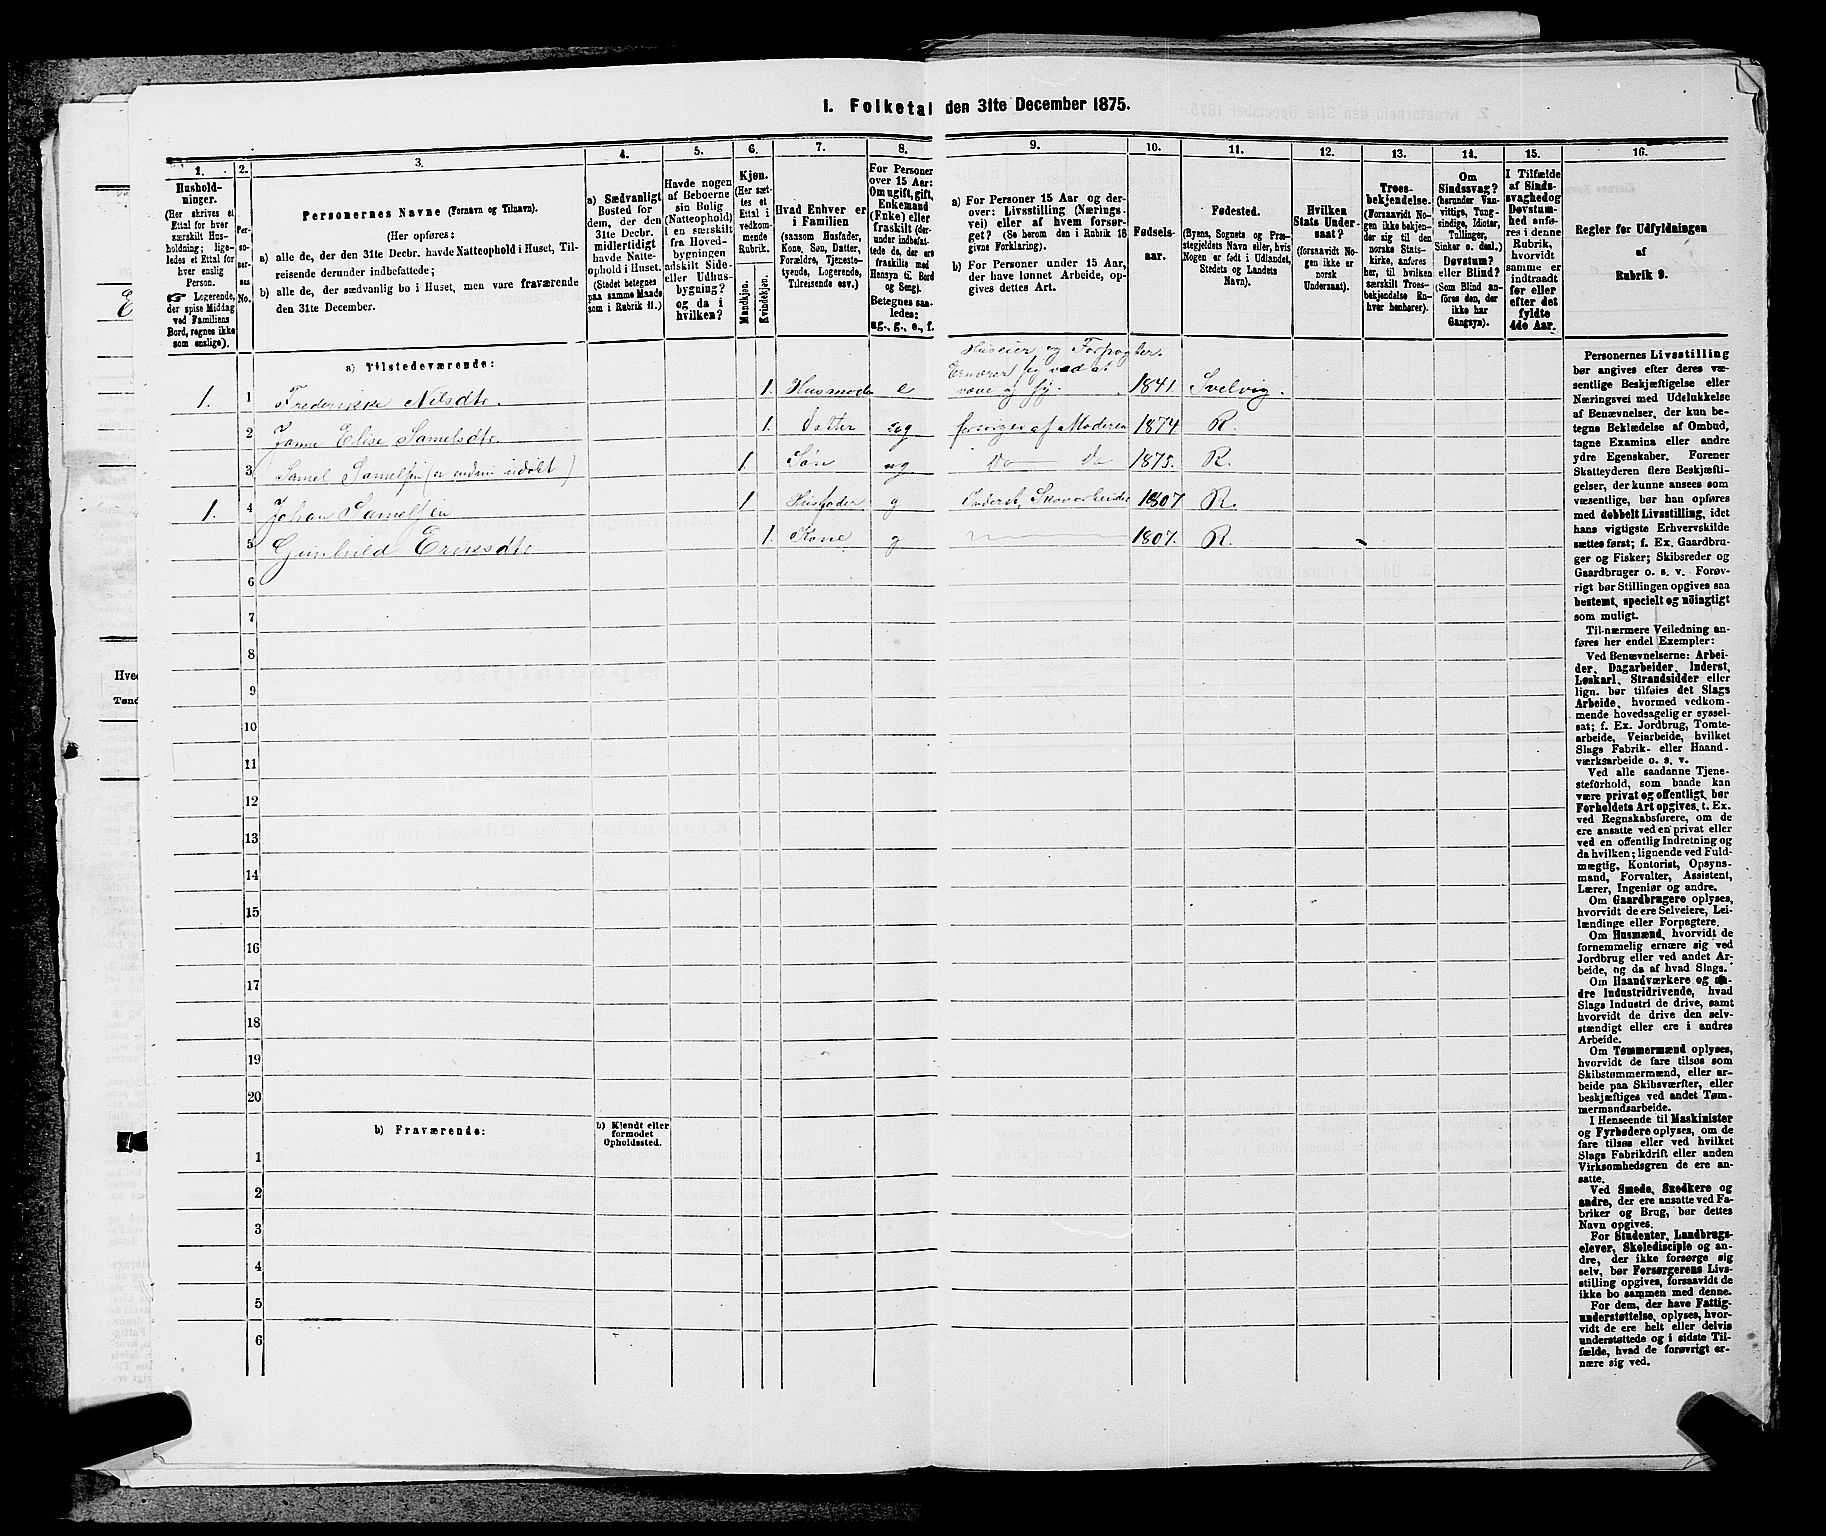 1. Folketal den 31te December 1875.
1. 2. 3. 4. 5. 6. 7. 8. 9. 10. 11. 12. 13. 14. 15. 16.
Hushold-
ninger.
(Her skrives et
Ettal for hver
særskilt Hus-
holdning; lige-
ledes et Ettal for
hver enslig
Person.
☞ Logerende,
der spise Middag
ved Familiens
Bord, regnes ikke
som enslige).
Per-
so-
ner-
nes
No.
Personernes Navne (Fornavn og Tilnavn).
(Her opføres:
a) alle de, der den 31te Decbr. havde Natteophold i Huset, Til-
reisende derunder indbefattede;
b) alle de, der sædvanlig bo i Huset, men vare fraværende
den 31te December.
a) Sædvanligt
Bosted for
dem, der den
31te Decbr.
midlertidigt
havde Natte-
ophold i Huset.
(Stedet betegnes
paa samme Maade
som i Rubrik 11.)
Havde nogen
af Beboerne
sin Bolig
(Natteophold)
i en særskilt
fra Hoved-
bygningen
adskilt Side-
eller Udhus-
bygning?
og da i
hvilken?
Kjøn.
(Her sæt-
tes et
Ettal i
vedkom-
mende
Rubrik.
Mandkjøn.
Kvindekjøn.
Hvad Enhver er
i Familien
(saasom Husfader,
Kone, Søn, Datter,
Forældre, Tjeneste-
tyende, Logerende,
Tilreisende osv.)
For Personer
over 15 Aar:
Om ugift, gift,
Enkemand
(Enke) eller
fraskilt (der-
under indbefat-
tede da, der ere
fraskilte med
Hensyn til Bord
og Seng).
Betegnes saa-
ledes:
ug., g., e., f.
a) For Personer 15 Aar og der-
over: Livsstilling (Nærings
vei) eller af hvem forsør-
get? (Se herom den i Rubrik 16
givne Forklaring).
b) For Personer under 15 Aar,
der have lønnet Arbeide, op-
gives dettes Art.
Fødsels-
aar.
Fødested.
(Byens, Sognets og Præ-
stegjeldets Navn eller, hvis
Nogen er født i Udlandet,
Stedets og Landets
Navn).
Hvilken
Stats Under-
saat?
(forsaavidt No-
gen ikke er
norsk
Undersaat).
Troes-
bekjendelse.
(Forsaavidt No-
gen ikke bekjen-
der sig til den
norske Stats-
kirke, anføres
her, til hvilken
særskilt Troes-
bekjendelse En-
hver henhører).
Om
Sindssvag?
(herunder Van-
vittige, Tung-
sindige, Idioter,
Tullinger,
Sinker o. desl.)
Døvstum?
eller Blind?
(Som Blind an-
føres den, der
ikke har
Gangsyn).
I Tilfælde
af Sinds-
svaghed og
Døvstum-
hed anfø-
res i denne
Rubrik,
hvorvidt
samme er
indtraadt
før eller
efter det
fyldte
4de Aar.
Regler for Udfyldningen
af
Rubrik 9.
a) Tilstedeværende:
Huseier og Forpagter.
Ernærer sig ved at
1. 1 Frederikke Nilsdtr. 1. Husmoder e væve og sy. 1841. Svelvig.
2 Janne Elise Samelsdtr. 1. Datter ug forsørges af Moderen 1874 R.
3 Samel Samelsen (er endnu udøbt) 1 Søn ug Do Do 1875. R.
1. 4 Johan Samelsen 1 Husfader g Inderst, Skovarbeider 1807 R.
5 Gunhild Ericsdtr. 1. Kone g 1807. R.
6
7
8
9
10
11
12
13
14
15
16
17
18
19
20
b) Fraværende:
b) Kjendt eller
formodet
Opholdssted.
1
2
3
4
5
6
Personernes Livsstilling
bør angives efter deres væ-
sentlige Beskjæftigelse eller
Næringsvei med Udelukkelse
af Benævnelser, der kun be-
tegne Beklædelse af Ombud,
tagne Examina eller andre
ydre Egenskaber. Forener
Skatteyderen flere Beskjæfti-
gelser, der kunne ansees som
væsentlige, bør han opføres
med dobbelt Livsstilling, idet
hans vigtigste Erhvervskilde
sættes først; f. Ex. Gaardbru-
ger og Fisker; Skibsreder og
Gaardbruger o. s. v. Forøv-
rigt bør Stillingen opgives saa
bestemt, specielt og nøiagtigt
som muligt.
Til nærmere Veiledning an-
føres her endel Exempler:
Ved Benævnelserne: Arbei-
der, Dagarbeider, Inderst,
Løskarl, Strandsidder eller
lign. bør tilføies det Slags
Arbeide, hvormed vedkom-
mende hovedsagelig er syssel-
sat; f. Ex. Jordbrug, Tomte-
arbeide, Veiarbeide, hvilket
Slags Fabrik- eller Haand-
værksarbeide o. s. v.
Ved alle saadanne Tjene-
steforhold, som baade kan
være privat og offentligt, bør
Forholdets Art opgives, t. Ex.
ved Regnskabsførere, om de
ere ansatte ved en privat eller
ved en offentlig Indretning og
da hvilken; lignende ved Fuld-
mægtig, Kontorist, Opsyns-
mand, Forvalter, Assistent,
Lærer, Ingeniør og andre.
Om Gaardbrugere oplyses,
hvorvidt de ere Selveiere, Lei-
lændinge eller Forpagtere.
Om Husmænd, hvorvidt de
fornemmelig ernære sig ved
Jordbrug eller ved andet Ar-
beide, og da af hvad Slags.
Om Haandværkere og an-
dre Industridrivende, hvad
Slags Industri de drive, samt
hvorvidt de drive den selv-
stændigt eller ere i andres
Arbeide.
Om Tømmermænd oplyses,
hvorvidt de fare tilsøs som
Skibstømmermænd, eller ar-
beide paa Skibsværfter, eller
beskjæftiges ved andet Tøm-
mermandsarbeide.
I Henseende til Maskinister
og Fyrbødere oplyses, om de
fare tilsøs eller ved hvilket
Slags Fabrikdrift eller anden
Virksomhedsgren de ere an-
satte.
Ved Smede, Snedkere og
andre, der ere ansatte ved Fa-
briker og Brug, bør dettes
Navn opgives.
For Studenter, Landbrugs-
elever, Skoledisciple og an-
dre, der ikke forsørge sig
selv, bør Forsørgerens Livs-
stilling opgives, forsaavidt de
ikke bo sammen med denne.
For dem, der have Fattig-
understøttelse, oplyses, hvor-
vidt de ere helt eller delvis
understøttede og i sidste Til-
fælde, hvad de forøvrigt er-
nære sig ved.